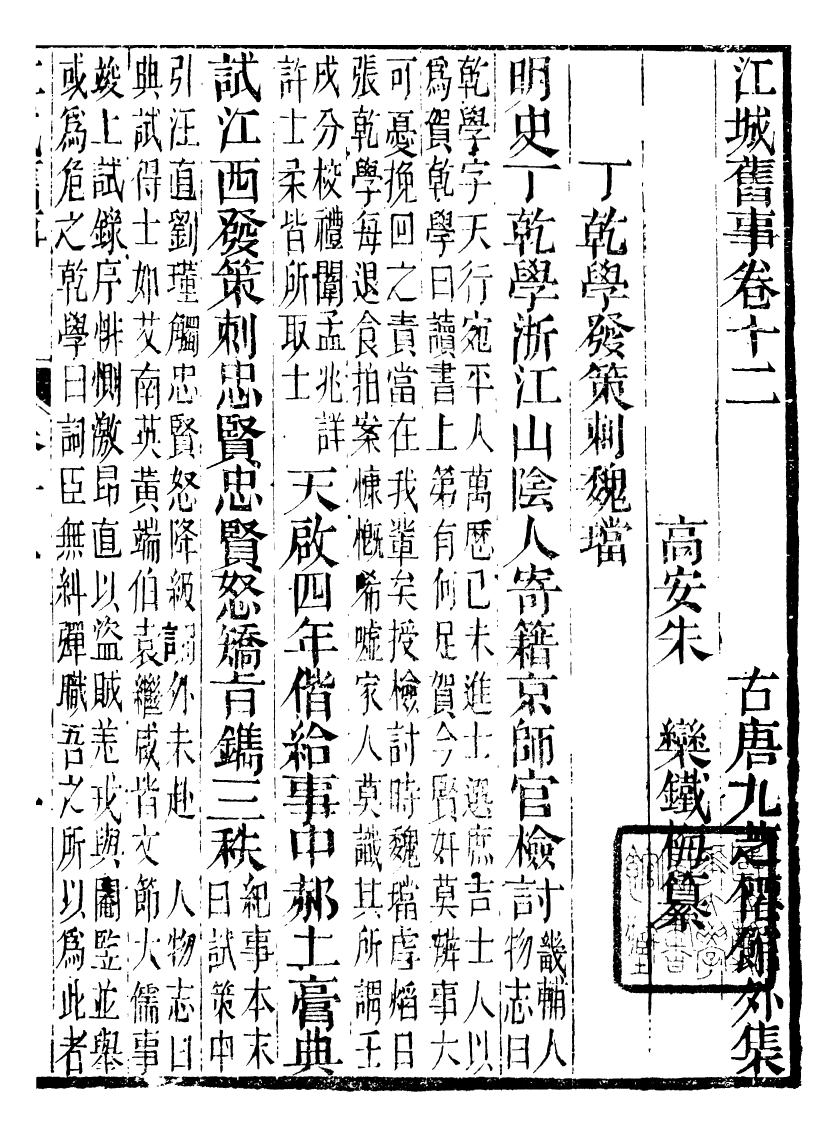 江城舊事卷十二　古唐九芝僊館外集
高安朱　欒鐵梅纂
丁乾學發策刺魏璫
明史丁乾學浙江山陰人寄籍京師官檢討畿輔人
物志曰
乾學字天行宛平人萬歷己未進士選庶吉士人以
爲賀乾學曰讀書上第有何足賀今賢奸莫辨事大
可憂挽回之責當在我輩矣授檢討時魏璫虐熖日
張乾學每退食拍案慷慨希噓家人莫識其所謂壬
戌分校禮闈孟兆詳
許士柔皆所取士
天啟四年偕給事中郝土膏典
試江西發策刺忠賢忠賢怒矯旨鐫三秩紀事本末
曰試策中
引汪直劉瑾觸忠賢怒降級調外未赴　人物志曰
典試得士如艾南英黃端伯袁繼咸皆文節大儒事
竣上試錄序悱惻激昂直以盜賊羌戎與閹監並舉
或爲危之乾學曰詞臣無糾彈職吾之所以爲此者